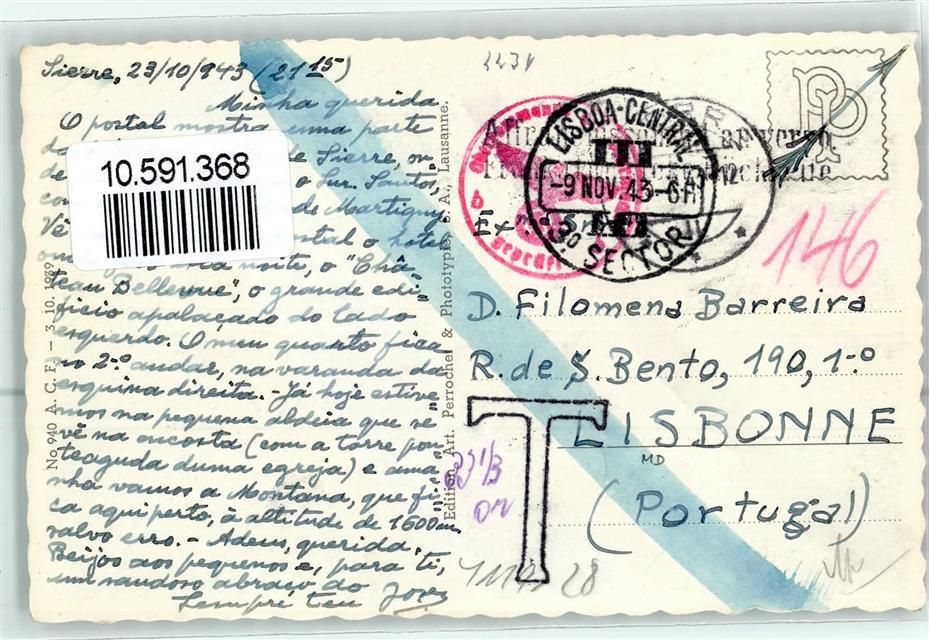 Sierre, 23/10/943 (21 15)
Minha querida
O postal mostra uma parte
de Sierre, ou
10.591.368
o Sur. Santos,
de Martigny.
Vê
postal o hotel
noite, o "Châ-
teau Bellevue", o grande edi-
fício apalaçado do lado
esquerdo. O meu quarto fica
no 2.º andar, na varanda da
esquina direita. - Já hoje estive-
mos na pequena aldeia que se
vê na encosta (com a torre pon-
teaguda duma egreja) e ama-
nhã vamos a Montana, que fi-
ca aqui perto, à altitude de 1600m,
salvo erro. - Adeus, querida,
Beijos aos pequenos e, para ti,
um saudoso abraço do
sempre teu
No 940 A. C. F. — 3. 10. 1939
Edition Art. Perrochet & Phototypie S. A., Lausanne.
LISBOA-CENTRAL
-9 NOV 43-6H
3º SECTOR
geprüft
b
146
D. Filomena Barreira
R. de S. Bento, 190, 1.º
LISBONNE
MD
(Portugal)
T